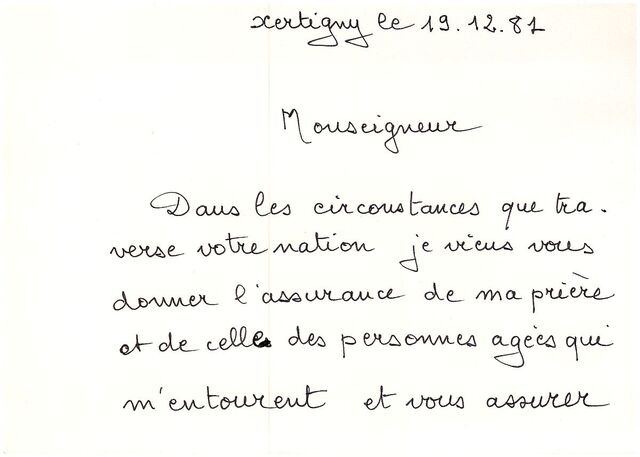 Xertigny le 19.12.81
Monseigneur
Dans les circonstances que tra-
verse votre nation je viens vous
donner l'assurance de ma prière
et de celle des personnes agées qui
m'entourent et vous assurer